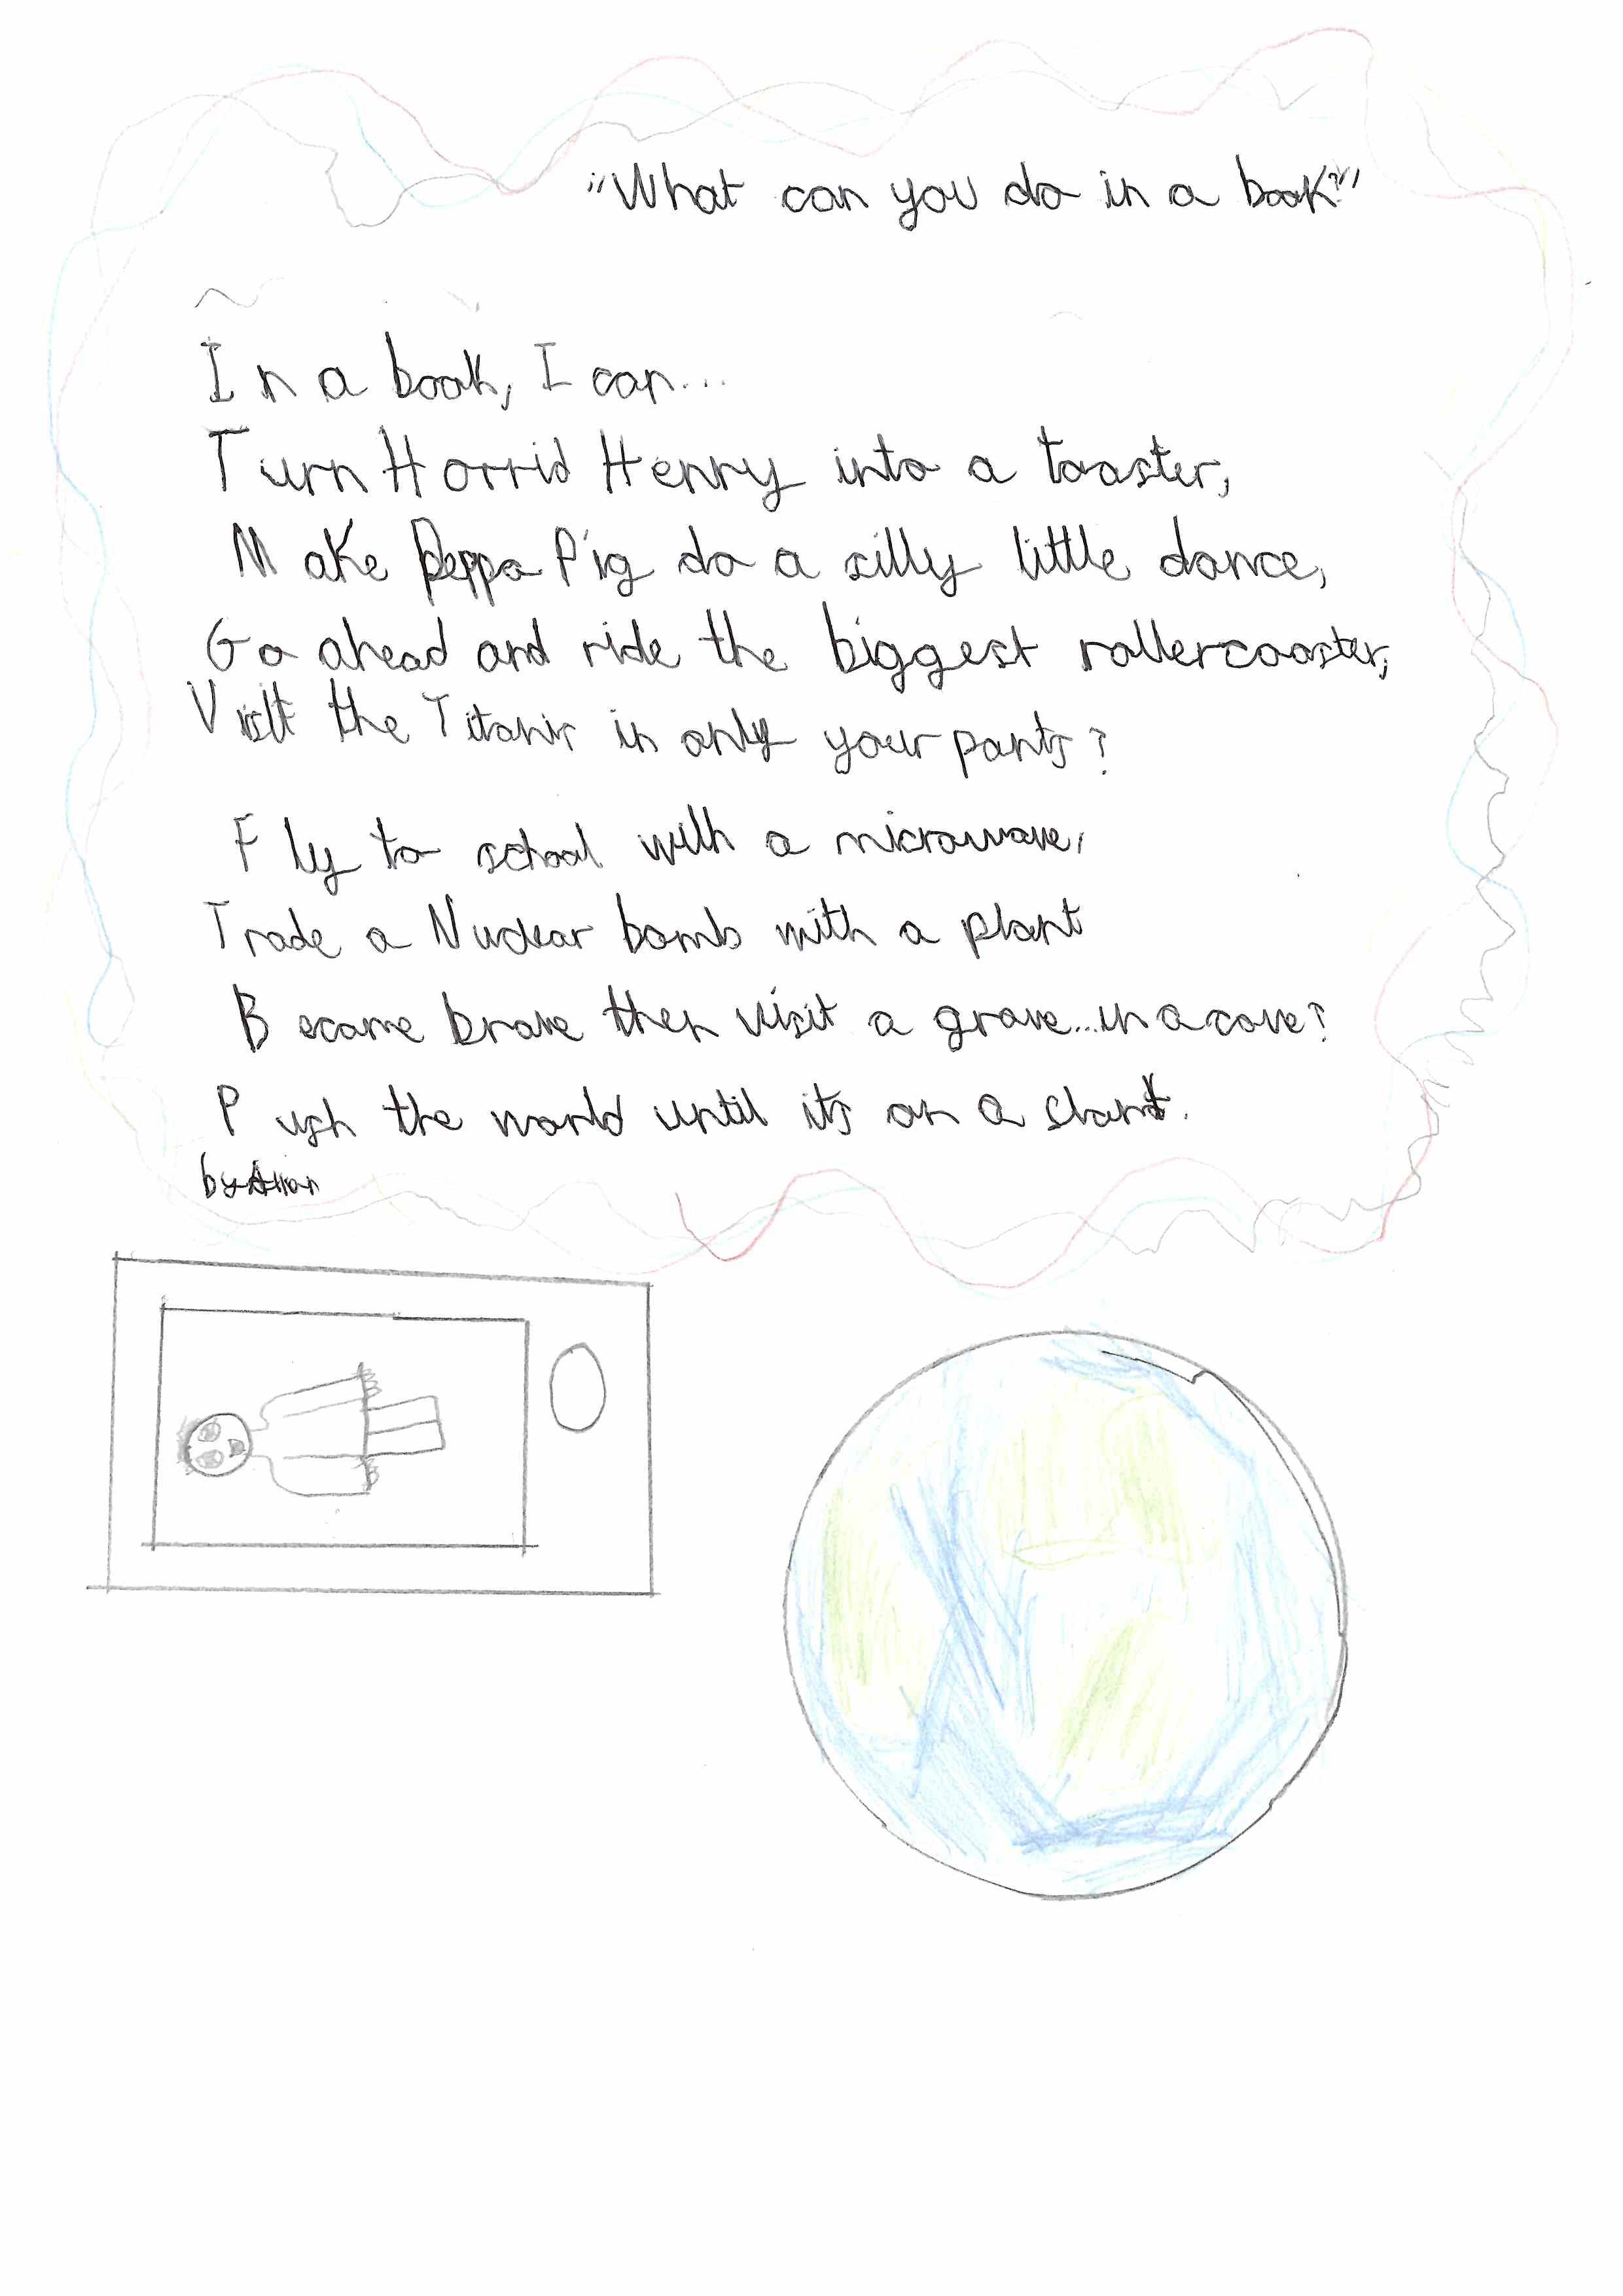 "What can you do in a book?"
In a book, I can...
Turn Horrid Henry into a toaster,
Make Peppa Pig do a silly little dance,
Go ahead and ride the biggest rollercoaster,
Visit the Titanic in only your pants?
Fly to school with a microwave,
Trade a Nuclear bomb with a plant
Become brave then visit a grave...in a cave?
Push the world until its on a slant.
by